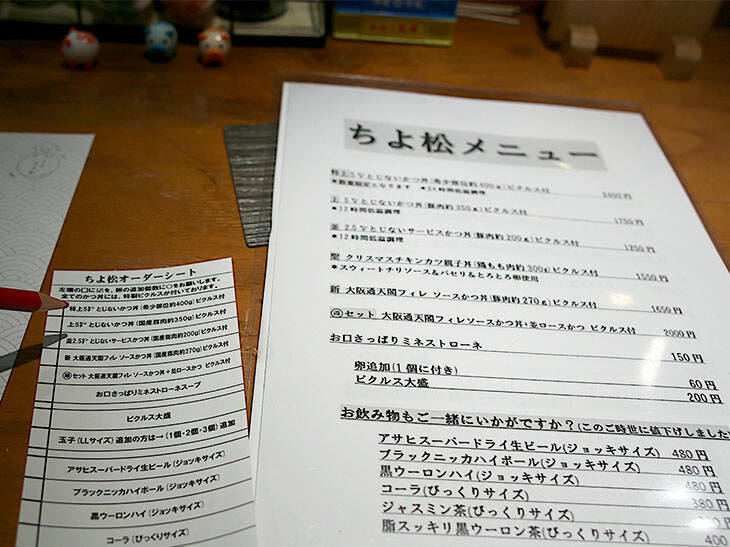 ちよ松メニュー
特上5㌢とじないかつ丼(希少部位約400g)ピクルス付 2400円
＊数量限定となります ＊24時間低温調理
上 5㌢とじないかつ丼(豚肉約350g)ピクルス付 1750円
＊12時間低温調理
並 2.5㌢とじないサービスかつ丼(豚肉約200g)ピクルス付 1250円
＊12時間低温調理
聖 クリスマスチキンカツ親子丼(鶏もも肉約300g)ピクルス付 1550円
＊スウィートチリソース&パセリ&とろとろ卵使用
新 大阪通天閣フィレ ソースかつ丼(豚肉約270g)ピクルス付 1650円
セット 大阪通天閣フィレソースかつ丼+並ロースかつ ピクルス付 2000円
お口さっぱりミネストローネ 150円
卵追加(1個に付き) 60円
ピクルス大盛 200円
お飲み物もご一緒にいかがですか？(このご時世に値下げしました
アサヒスーパードライ生ビール(ジョッキサイズ) 480円
ブラックニッカハイボール(ジョッキサイズ) 480円
黒ウーロンハイ(ジョッキサイズ) 480円
コーラ(びっくりサイズ) 380円
ジャスミン茶(びっくりサイズ)
脂スッキリ黒ウーロン茶(びっくりサイズ) 400
ちよ松オーダーシート
左端の□に☑を、卵の追加個数に○をお願いします。
全てのかつ丼には、特製ピクルスが付いております。
特上5㌢とじないかつ丼(希少部位約400g)ピクルス付
上5㌢とじないかつ丼(国産豚肉約350g)ピクルス付
並2.5㌢とじないサービスかつ丼(国産豚肉約200g)ピクルス付
新 大阪通天閣フィレ ソースかつ丼(国産豚肉約270g)ピクルス付
セット 大阪通天閣フィレ ソースかつ丼+並ロースかつ ピクルス付
お口さっぱりミネストローネスープ
ピクルス大盛
玉子(LLサイズ)追加の方は→(1個・2個・3個)追加
アサヒスーパードライ生ビール(ジョッキサイズ)
ブラックニッカハイボール(ジョッキサイズ)
黒ウーロンハイ(ジョッキサイズ)
コーラ(びっくりサイズ)